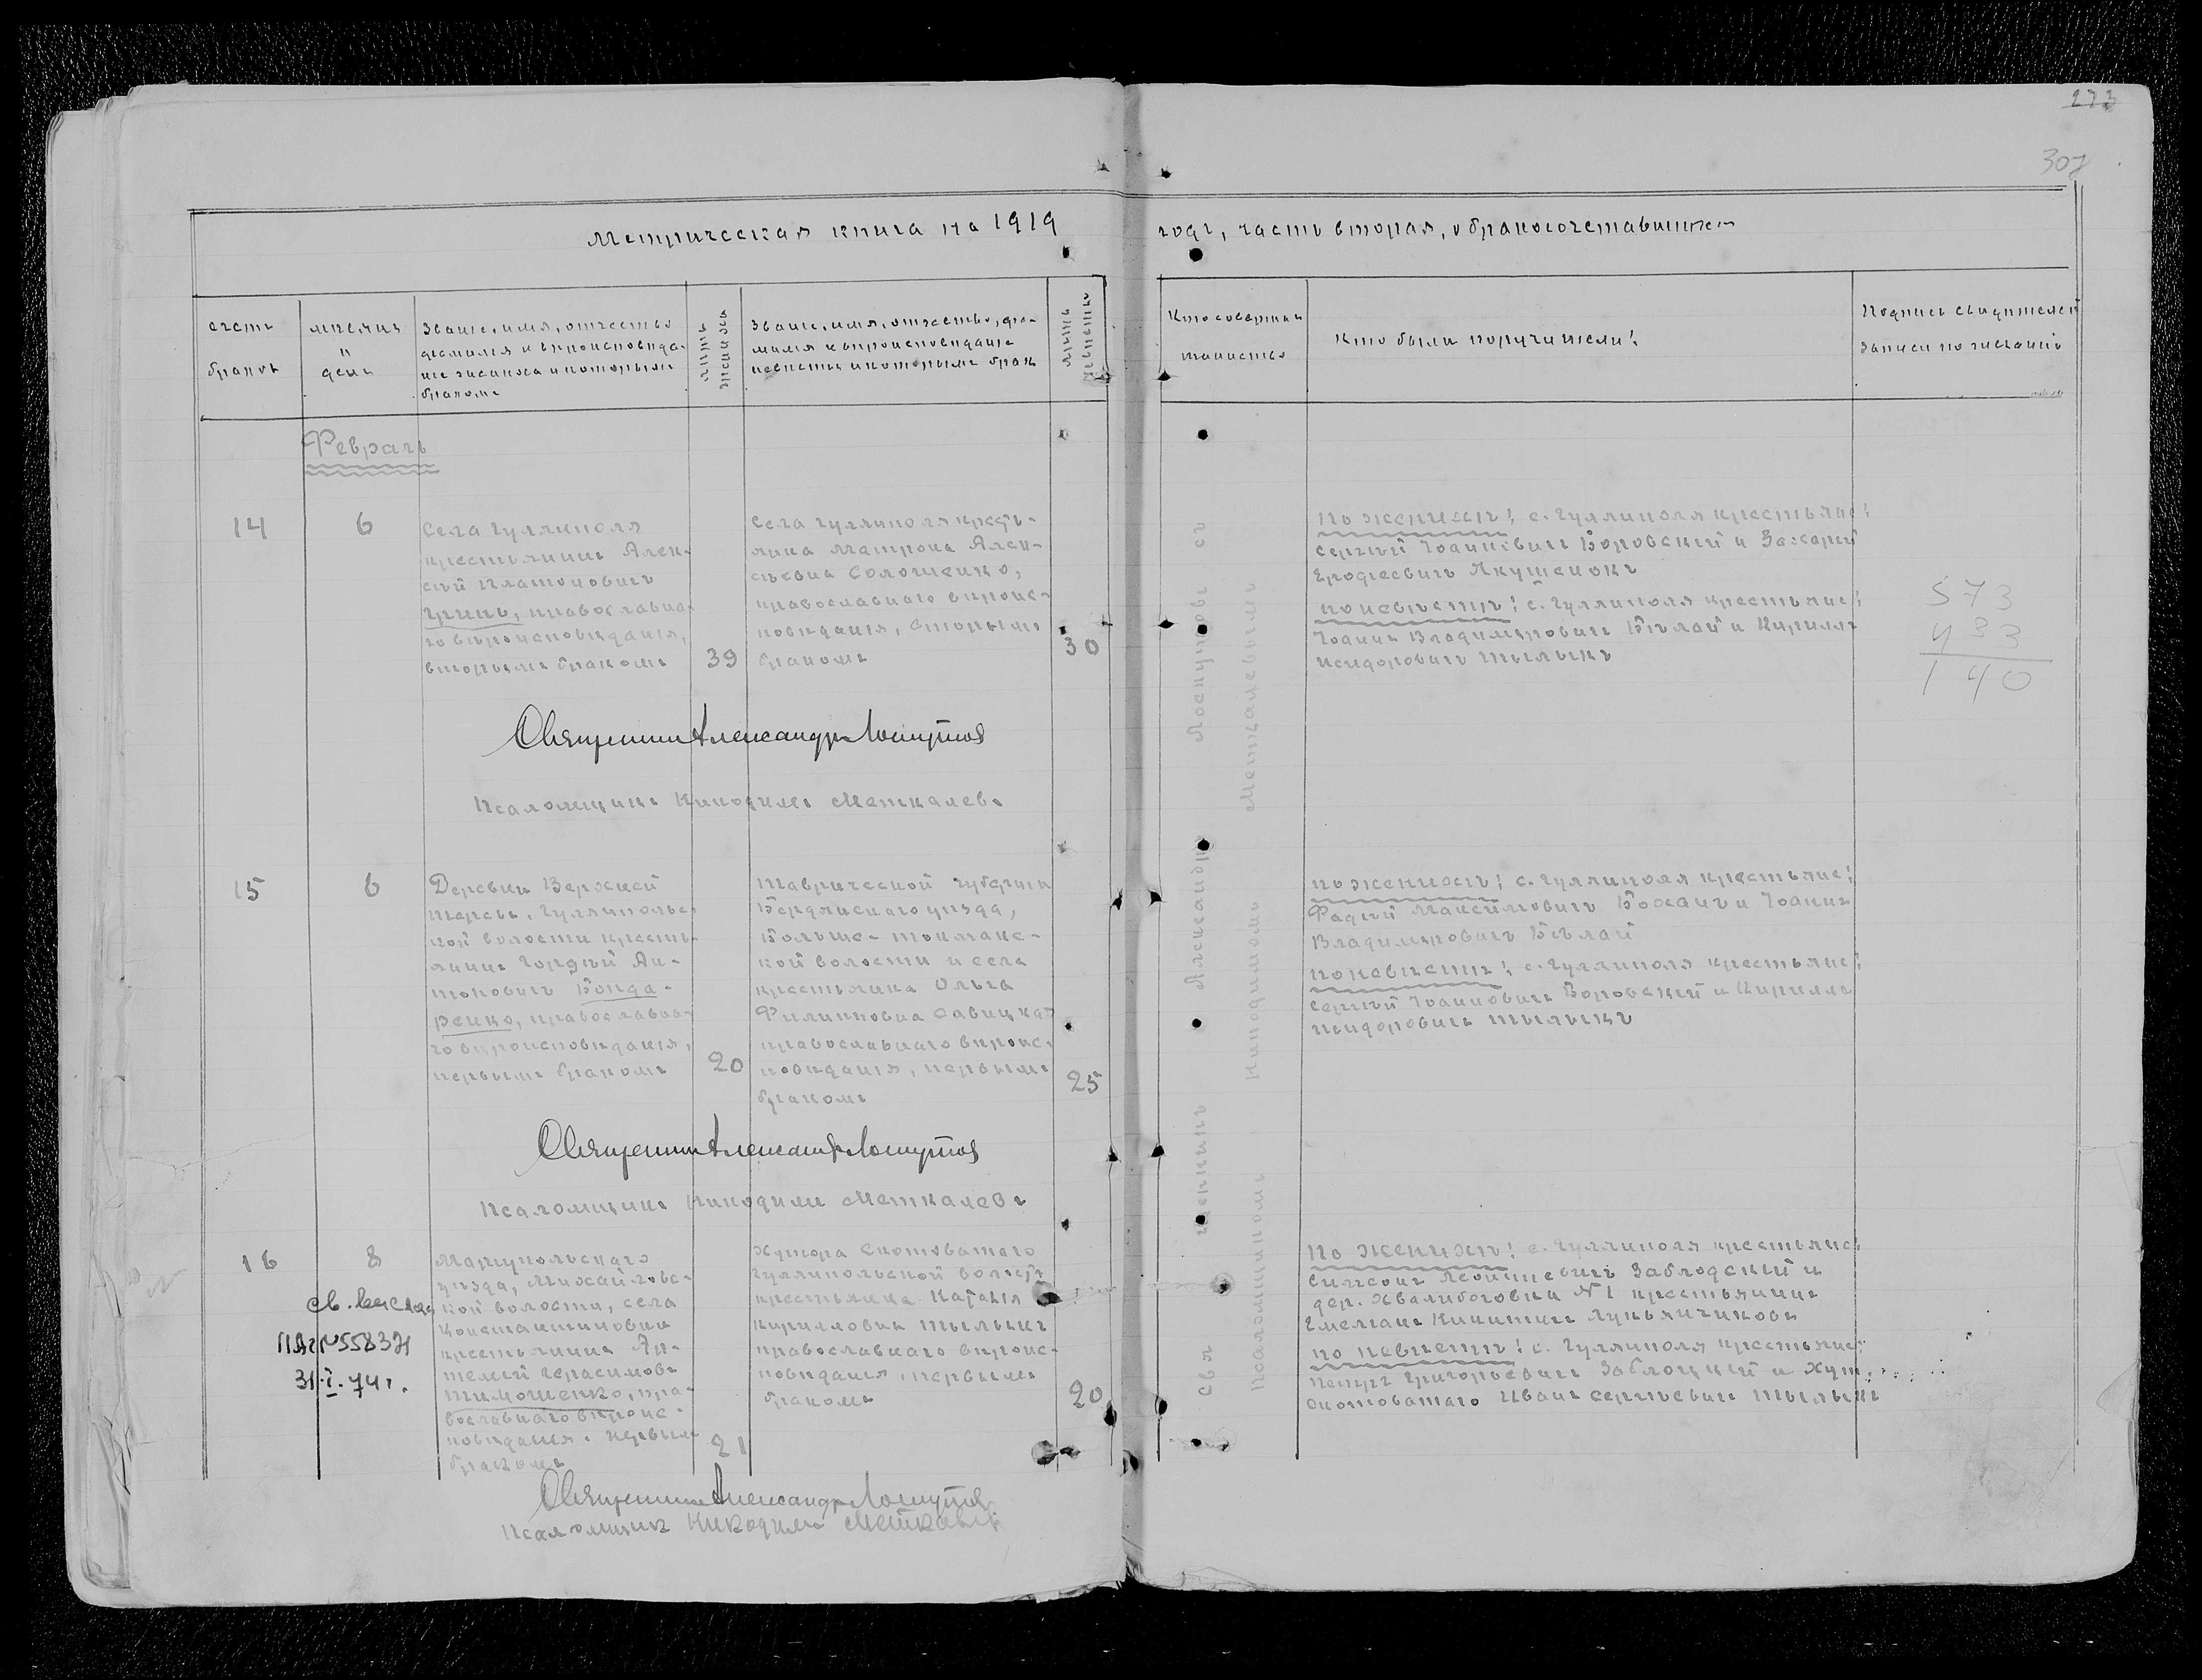 273
307
Метрическая книга на 1919
годъ, часть вторая, о бракосочетавшихся
счетъ
браковъ
мѣсяцъ
и
день
Званіе, имя, отчество
фамилія и вѣроисповѣда-
ніе жениха и которымъ
бракомъ
лѣта
жениха
Званіе, имя, отчество, фа-
милія и вѣроисповѣданіе
невѣсты и которымъ брак
лѣта
невѣсты
Кто совершал
таинство
Кто были поручители:
Подпись свидѣтелей
записи по желанію
Февраль
14
6
Села Гуляйполя
крестьянинъ Алек-
сѣй Платоновичъ
Гринь, православна-
го вѣроисповѣданія,
вторымъ бракомъ
39
Села Гуляйполя кресть-
янка Матрона Алек-
сѣевна Солошенко,
православнаго вѣроис-
повѣданія, вторымъ
бракомъ
30
по женихѣ: с. Гуляйполя крестьяне:
Сергій Іоанновичъ Боровскій и Захарій
Ерофеевичъ Якушенокъ
по невѣстѣ: с. Гуляйполя крестьяне:
Іоаннъ Владимировичъ Бѣлай и Кириллъ
Исидоровичъ Тылыкъ
573
433
140
Священникъ Александръ Лоскутовъ
Псаломщикъ Никодимъ Меткалевъ
15
6
Деревни Верхней
Терсы, Гуляйпольс-
кой волости кресть-
янинъ Гордѣй Ан-
тоновичъ Бонда-
ренко, православна-
го вѣроисповѣданія,
первымъ бракомъ
20
Таврической губерніи
Бердянскаго уѣзда,
Больше-Токмакс-
кой волости и села
крестьянка Ольга
Филипповна Савицкая
православнаго вѣроис-
повѣданія, первымъ
бракомъ
25
по женихѣ: с. Гуляйполя крестьяне:
Фадѣй Максимовичъ Боханъ и Іоаннъ
Владимировичъ Бѣлай
по невѣстѣ: с. Гуляйполя крестьяне:
Сергій Іоанновичъ Боровскій и Кириллъ
Исидоровичъ Тылыкъ
Священникъ Александръ Лоскутовъ
Псаломщикъ Никодимъ Меткалевъ
16
8
Маріупольскаго
уѣзда, Михайловс-
кой волости, села
Константиновки
крестьянинъ Ан-
телей Герасимовъ
Тимошенко, пра-
вославнаго вѣроис-
повѣданія. первым
бракомъ
21
св.
№55837
31.I.74г.
Хутора Скотоватаго
Гуляйпольской волости
крестьянка Наталія
Кирилловна Тылыкъ
православнаго вѣроис-
повѣданія, первымъ
бракомъ
20
по женихѣ: с. Гуляйполя крестьяне:
Симеонъ Заблодскій и
дер. Хвалибоговки №1 крестьянинъ
Емеліанъ Никитинъ Лукьянчиковъ
по невѣстѣ: с. Гуляйполя крестьяне:
Петръ Григорьевичъ Заблоцкій и хут.
Скотоватаго Иванъ Сергѣевичъ Тылыкъ
Священникъ Александръ Лоскутовъ
Псаломщикъ Никодимъ Меткалевъ
Священникъ Александръ Лоскутовъ съ
Псаломщикомъ Никодимомъ Меткалевымъ